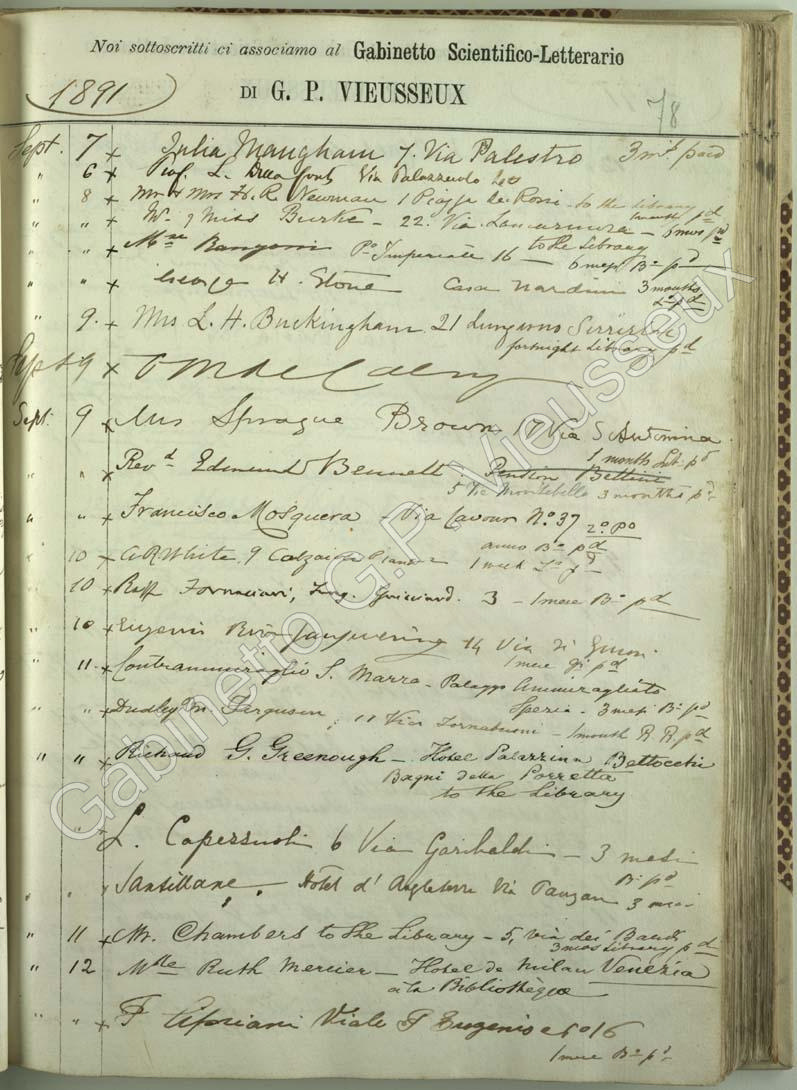 Noi sottoscritti ci associamo al Gabinetto Scientifico-Letterario
1891 DI G. P. VIEUSSEUX
78
Sept. 7 x Julia Maugham 7. Via Palestro 3 mths paid
" 6 x Prof. L. Via Palazzuolo
" 8 x Mr & Mrs H. R. Newman 1 Piazza de Rossi - to the Library
1 month pd
" " x & Miss Burke - 22. Via - 6 mos pd
to the Library
" " x Mme Po Imperiale 16 - 6 mesi Bo pd
" " x George H. Stone Casa Nardini 3 months
pd
" 9. x Mrs L. H. Buckingham 21 Lungarno Serristori
fortnight Library pd
Sept 9 x
Sept. 9 x Mrs Sprague Brown 17 Via S Antonina
1 month pd
" " x Revd Edmund Bennett Pension Bellini
5 Via Montebello 3 months pd
" " x Francisco Mosquera - Via Cavour No. 37 2o Po
anno Bo pd
" 10 x A R White. 9 1 week pd
" 10 x Raff Fornaciari, Lung. Guicciard. 3 - 1 mese Bo pd
" 10 x Eugenio 14 Via di
1 mese pd
" 11. x Contrammiraglio S. Marra - Palazzo Ammiragliato
Spezia - 3 mesi Bo pd
" " x Dudley Ferguson, 11 Via Tornabuoni - 1 month R. R. pd
" " x Richard G. Greenough - Hotel Palazzina Bettocchi
Bagni della Porretta
to the Library
" L. 6 Via Garibaldi - 3 mesi
Bo pd
" " Santillane, Hotel d'Angleterre Via 3 mesi
" 11 x Mr. Chambers to the Library - 5, via dei Bardi
3 mos Library pd
" 12 Mlle Ruth Mercier - Hotel de Milan Venezia
à la Bibliothèque
" " x F Cipriani Viale P Eugenio 16
1 mese Bo pd
Gabinetto G.P. Vieusseux